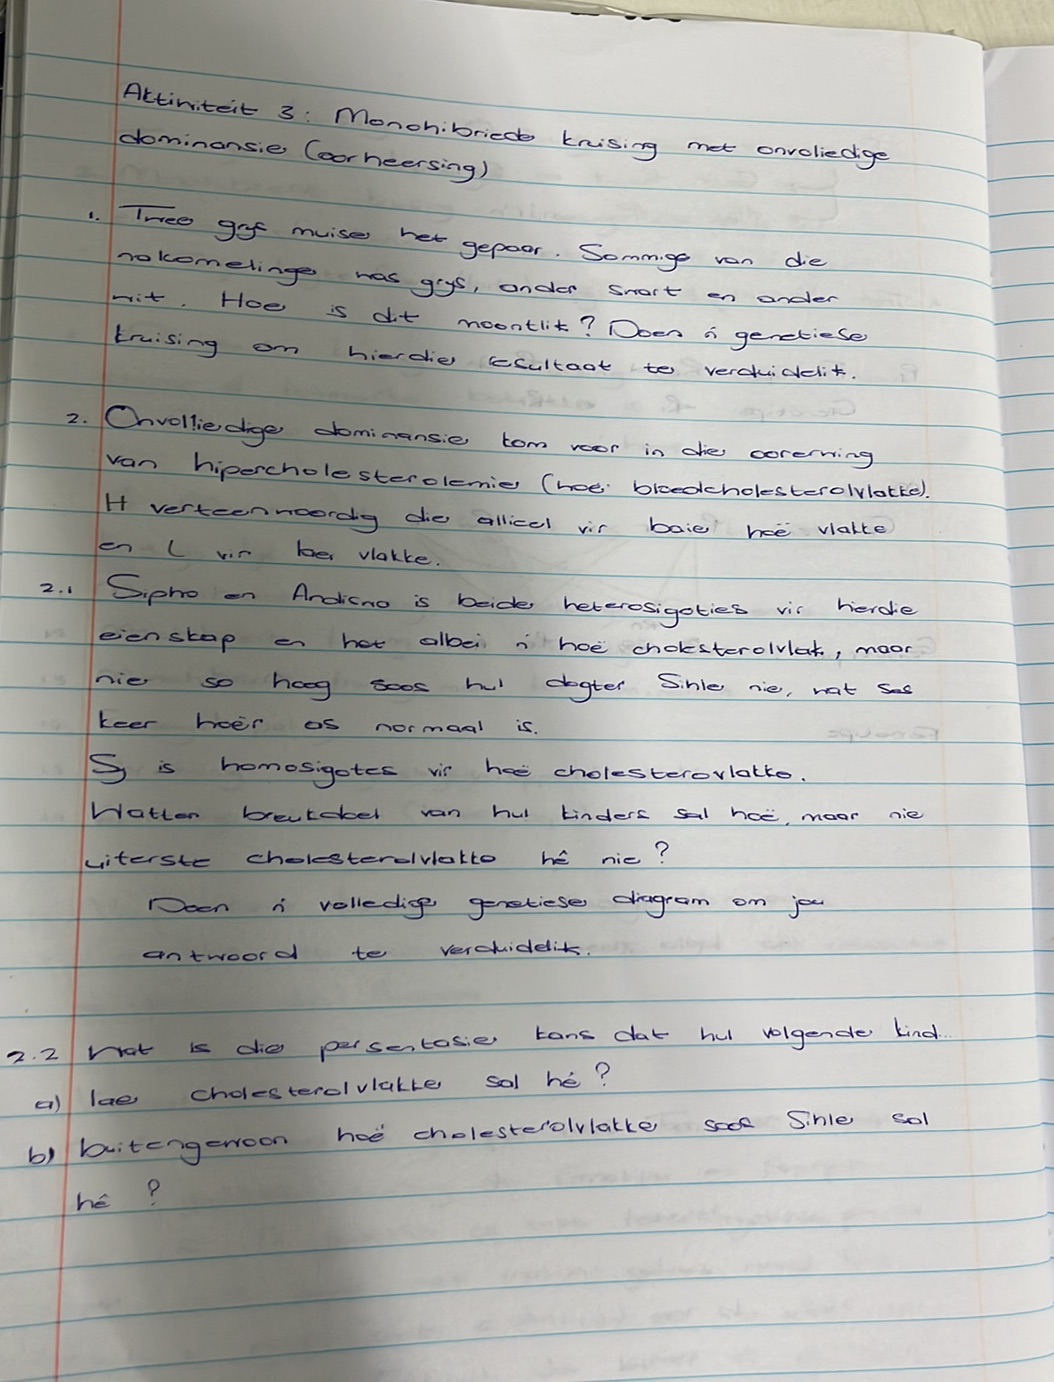 Aktiwiteit 3: Monohibriede kruising met onvolledige
dominansie (oorheersing)
1. Twee grys muise het gepaar. Sommige van die
nakomelinge was grys, ander swart en ander
wit. Hoe is dit moontlik? Doen 'n genetiese
kruising om hierdie resultaat te verduidelik.
2. Onvolliedige dominansie kom voor in die oorerwing
van hipercholesterolemie (hoë bloedcholesterolvlakke).
H verteenwoordig die allieel vir baie hoë vlakke
en L vir lae vlakke.
2.1 Sipho en Andiswa is beide heterosigoties vir hierdie
eienskap en het albei 'n hoë cholesterolvlak, maar
nie so hoog soos hul dogter Sihle nie, wat ses
keer hoër as normaal is.
Sy is homosigoties vir hoë cholesterovlakke.
Watter breukdeel van hul kinders sal hoë, maar nie
uiterste cholesterolvlakke hê nie?
Doen 'n volledige genetiese diagram om jou
antwoord te verduidelik.
2.2 Wat is die persentasie kans dat hul volgende kind...
a) lae cholesterolvlakke sal hê?
b) buitengewoon hoë cholesterolvlakke soos Sihle sal
hê?